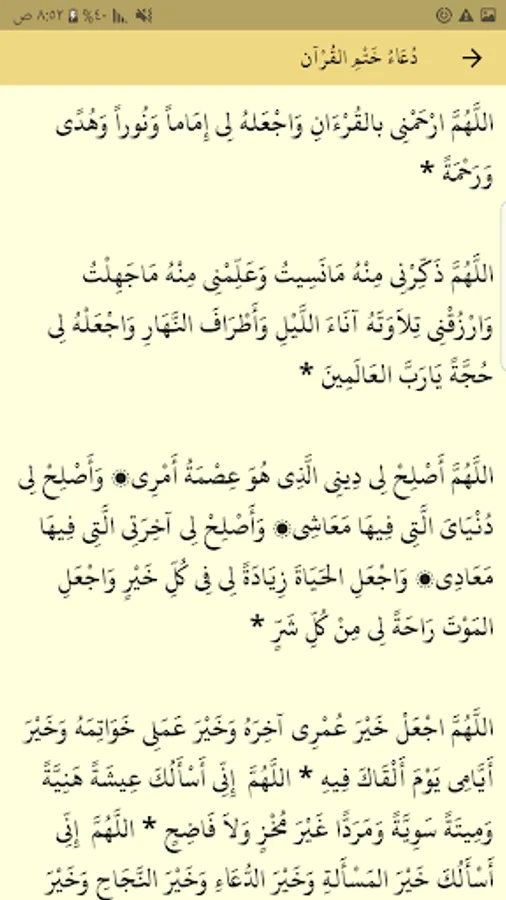 ٨:٥٢ ص ٤٠%
دُعَاءُ خَتْمِ القُرْآن
اللَّهُمَّ ارْحَمْنِى بالقُرْءَانِ وَاجْعَلهُ لِى إِمَاماً وَنُوراً وَهُدًى
وَرَحْمَةً *
اللَّهُمَّ ذَكِّرْنِى مِنْهُ مَانَسِيتُ وَعَلِّمْنِى مِنْهُ مَاجَهِلْتُ
وَارْزُقْنِى تِلاَوَتَهُ آنَاءَ اللَّيْلِ وَأَطْرَافَ النَّهَارِ وَاجْعَلْهُ لِى
حُجَّةً يَارَبَّ العَالَمِينَ *
اللَّهُمَّ أَصْلِحْ لِى دِينِى الَّذِى هُوَ عِصْمَةُ أَمْرِى۞ وَأَصْلِحْ لِى
دُنْيَاىَ الَّتِى فِيهَا مَعَاشِى۞ وَأَصْلِحْ لِى آخِرَتِى الَّتِى فِيهَا
مَعَادِى۞ وَاجْعَلِ الحَيَاةَ زِيَادَةً لِى فِى كُلِّ خَيْرٍ وَاجْعَلِ
المَوْتَ رَاحَةً لِى مِنْ كُلِّ شَرٍّ *
اللَّهُمَّ اجْعَلْ خَيْرَ عُمْرِى آخِرَهُ وَخَيْرَ عَمَلِى خَوَاتِمَهُ وَخَيْرَ
أَيَّامِى يَوْمَ أَلْقَاكَ فِيهِ * اللَّهُمَّ إِنِّى أَسْأَلُكَ عِيشَةً هَنِيَّةً
وَمِيتَةً سَوِيَّةً وَمَرَدًّا غَيْرَ مُخْزٍ وَلاَ فَاضِحٍ * اللَّهُمَّ إِنِّى
أَسْأَلُكَ خَيْرَ المَسْأَلةِ وَخَيْرَ الدُّعَاءِ وَخَيْرَ النَّجَاحِ وَخَيْرَ